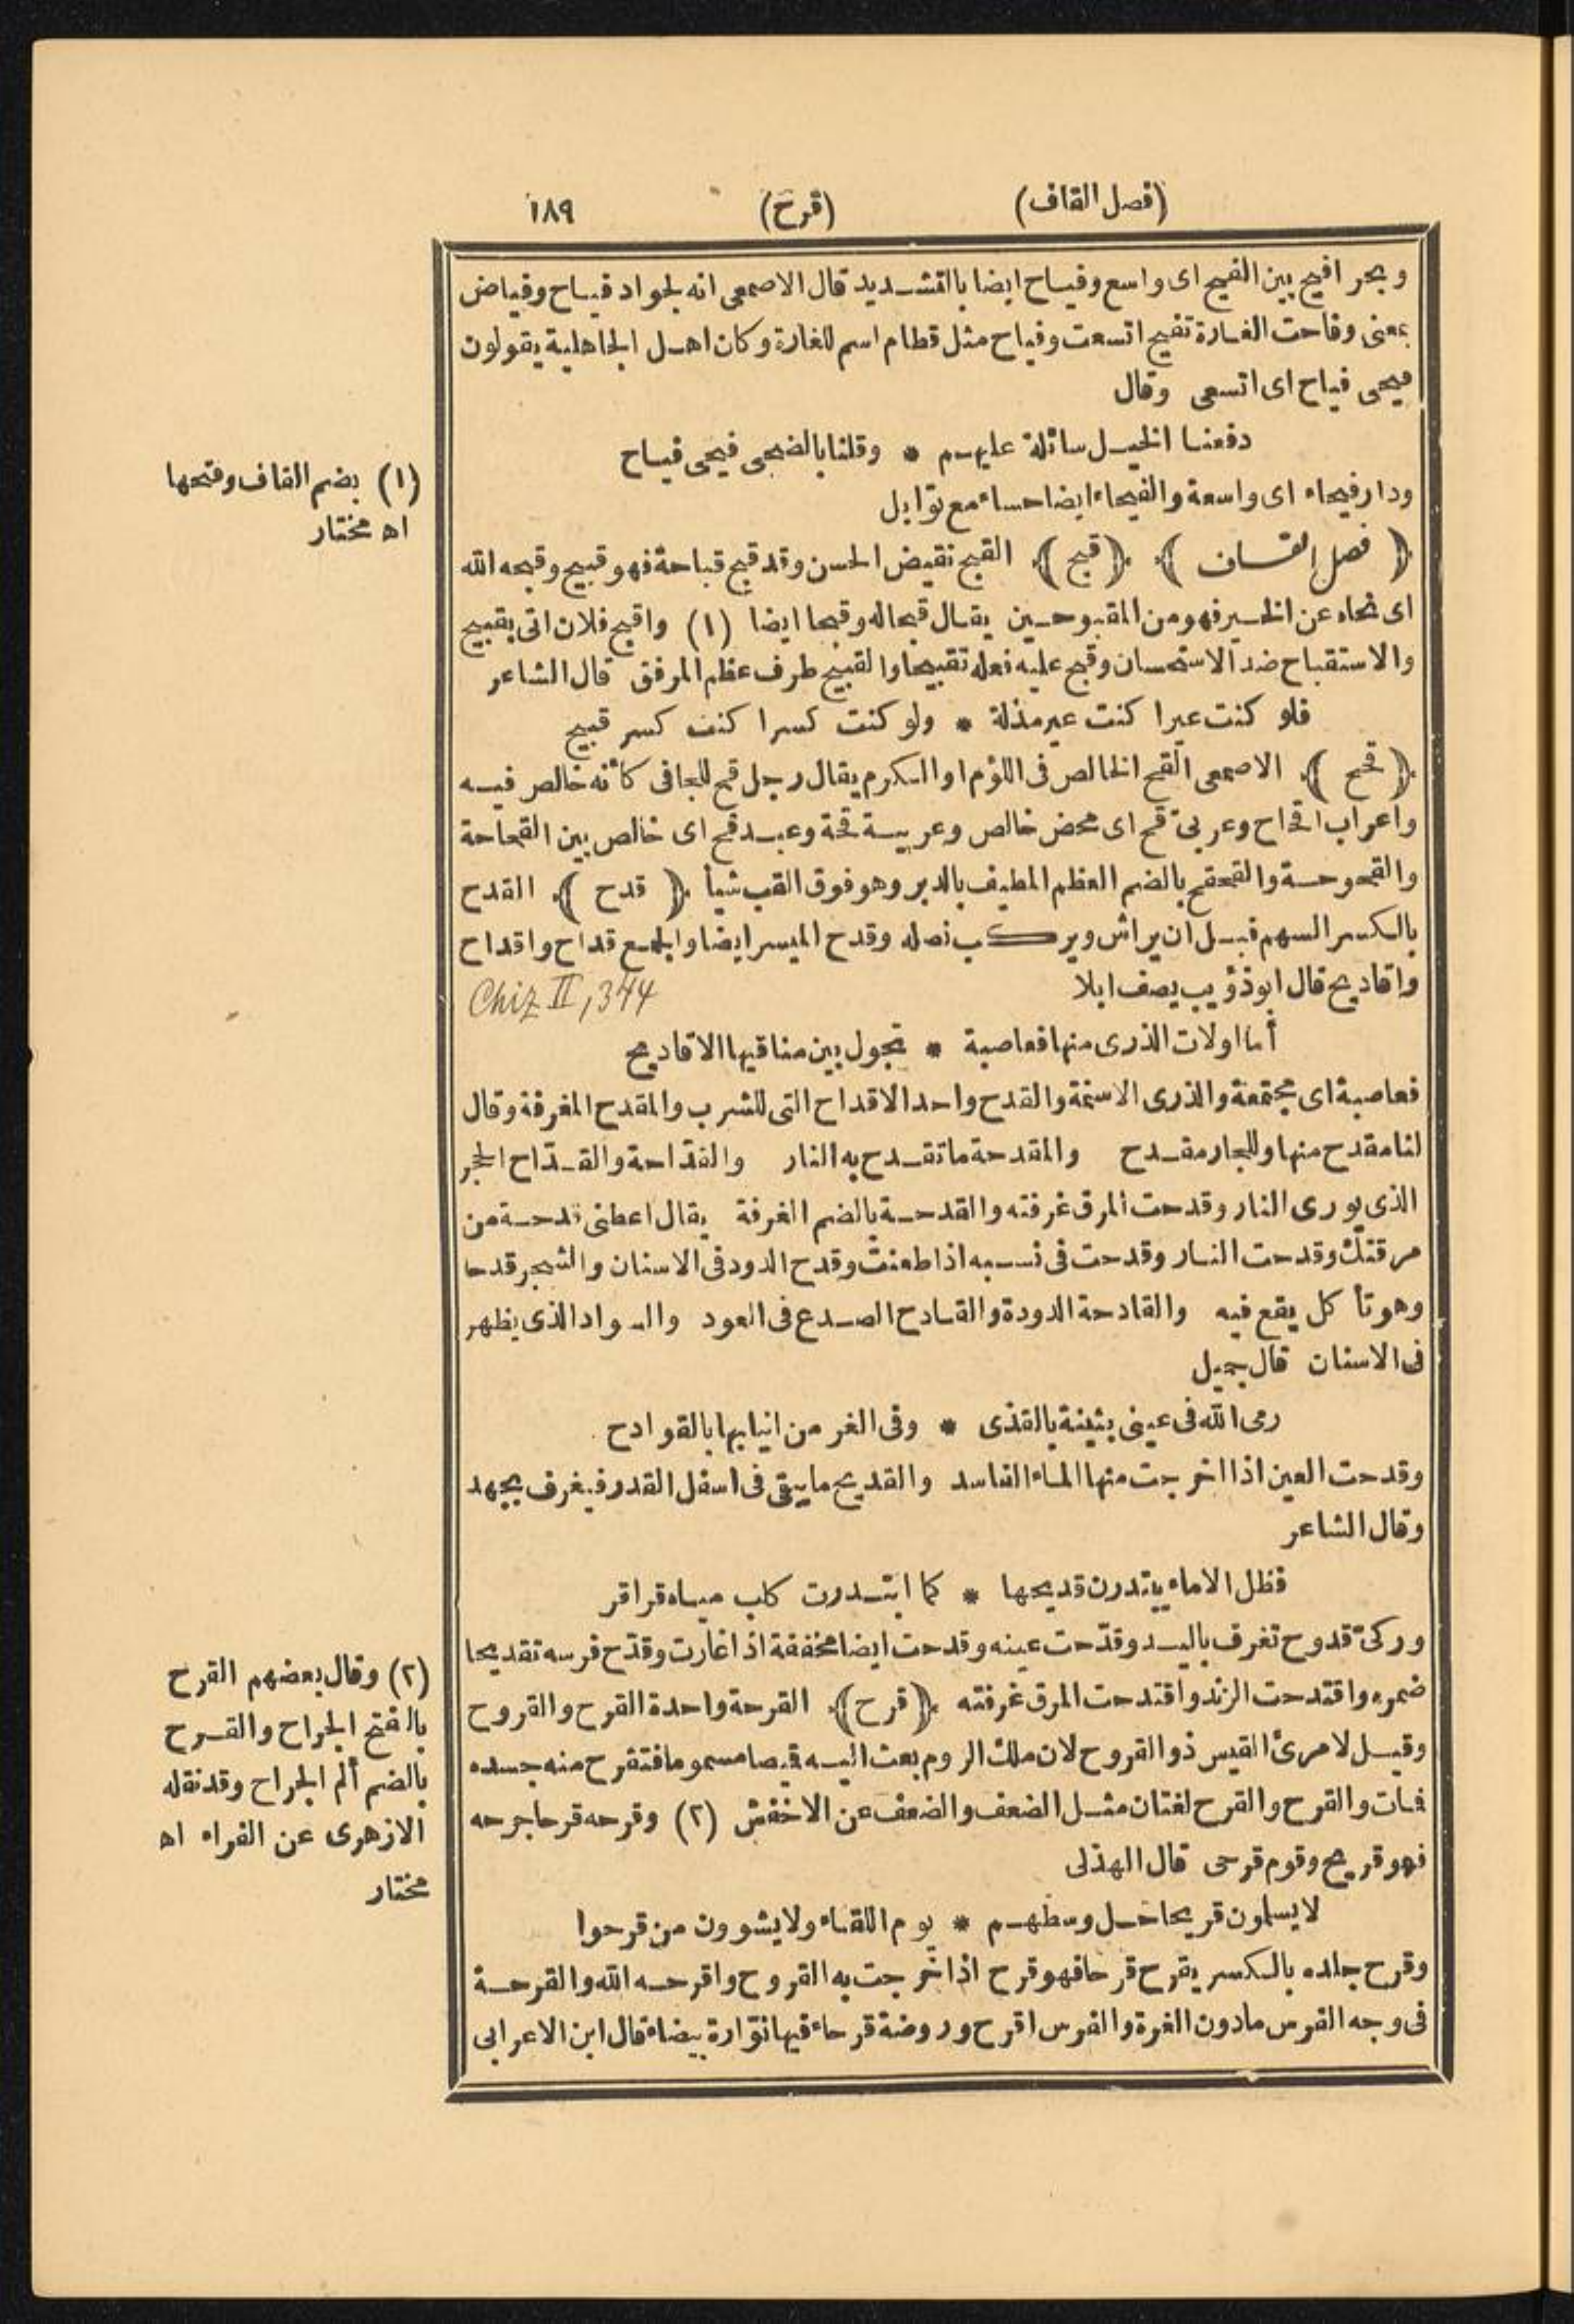 (فصل القاف) (قرح) ١٨٩
وبحر افيح بين الفيح اى واسع وفياح ايضا بالتشديد قال الاصمعى انه لجواد فياح وفياض
بمعنى وفاحت الغارة تفيح اتسعت وفياح مثل قطام اسم للغارة وكان اهل الجاهلية يقولون
فيحى فياح اى اتسعى وقال
دفعنا الخيل سائلة عليهم * وقلنا بالضحى فيحى فياح
ودار فيحاء اى واسعة والفيحاء ايضا حساء مع توابل
﴿ فصل القاف ﴾ ﴿ قبح ﴾ القبح نقيض الحسن وقد قبح قباحة فهو قبيح وقبحه الله
اى نحاه عن الخير فهو من المقبوحين يقال قبحا له وقبحا ايضا (١) واقبح فلان اتى بقبيح
والاستقباح ضد الاستحسان وقبح عليه فعله تقبيحا والقبيح طرف عظم المرفق قال الشاعر
فلو كنت عيرا كنت عير مذلة * ولو كنت كسرا كنت كسر قبيح
﴿ قحح ﴾ الاصمعى القح الخالص فى اللؤم او الكرم يقال رجل قح للجافى كأنه خالص فيه
واعراب اقحاح وعربىّ قح اى محض خالص وعربية قحة وعبد قح اى خالص بين القحاحة
والقحوحة والقحقح بالضم العظم المطيف بالدبر وهو فوق القب شيأ ﴿ قدح ﴾ القدح
بالكسر السهم قبل ان يراش ويركب نصله وقدح الميسر ايضا والجمع قداح واقداح
واقاديح قال ابو ذؤيب يصف ابلا Chiz II, 344
أما اولات الذرى منها فعاصبة * تجول بين مناقيها الاقاديح
فعاصبة اى مجتمعة والذرى الاسنمة والقدح واحد الاقداح التى للشرب والمقدح المغرفة وقال
لنا مقدح منها وللجار مقدح والمقدحة ما تقدح به النار والقدّاحة والقدّاح الحجر
الذى يورى النار وقدحت المرق غرفته والقدحة بالضم الغرفة يقال اعطنى قدحة من
مرقتك وقدحت النار وقدحت فى نسبه اذا طعنت وقدح الدود فى الاسنان والشجر قدحا
وهو تأكل يقع فيه والقادحة الدودة والقادح الصدع فى العود والسواد الذى يظهر
فى الاسنان قال جميل
رمى الله فى عينى بثينة بالقذى * وفى الغر من انيابها بالقوادح
وقدحت العين اذا اخرجت منها الماء الفاسد والقديح ما يبقى فى اسفل القدر فيغرف بجهد
وقال الشاعر
فظل الاماء يبتدرن قديحها * كما ابتدرت كلب مياه قراقر
وركىّ قدوح تغرف باليد وقدّحت عينه وقدحت ايضا مخففة اذا غارت وقدّح فرسه تقديحا
ضمره واقتدحت الزند واقتدحت المرق غرفته ﴿ قرح ﴾ القرحة واحدة القرح والقروح
وقيل لامرئ القيس ذو القروح لان ملك الروم بعث اليه قيصا مسموما فتقرح منه جسده
فمات والقرح والقرح لغتان مثل الضعف والضعف عن الاخفش (٢) وقرحه قرحا جرحه
فهو قريح وقوم قرحى قال الهذلى
لا يسلمون قريحا حل وسطهم * يوم اللقاء ولا يشوون من قرحوا
وقرح جلده بالكسر يقرح قرحا فهو قرح اذا خرجت به القروح واقرحه الله والقرحة
فى وجه الفرس ما دون الغرة والفرس اقرح وروضة قرحاء فيها نوّارة بيضاء قال ابن الاعرابى
(١) بضم القاف وفتحها
اه مختار
(٢) وقال بعضهم القرح
بالفتح الجراح والقرح
بالضم ألم الجراح وقد نقله
الازهرى عن الفراء اه
مختار